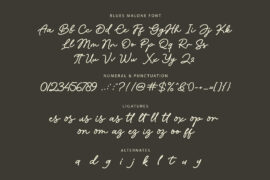 BLUES MALONE FONT
Aa Bb Cc Dd Ee Ff Gg Hh Ii Jj Kk
Ll Mm Nn Oo Pp Qq Rr Ss
Tt Uu Vv Ww Xx Yy Zz
NUMERAL & PUNCTUATION
0123456789
LIGATURES
es os us is as tt ll tl ot ox op or
on om az ez iz oz oo ff
ALTERNATES
a d g i j k l t u y